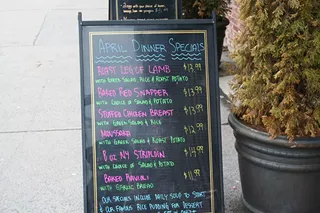 April Dinner Specials
Roast Leg of Lamb $13.99
with Greek Salad, Rice & Roast Potato
Baked Red Snapper $13.99
with Choice of Salad & Potato
Stuffed Chicken Breast $13.99
with Greek Salad & Rice
Moussaka $12.99
with Greek Salad
8 oz NY Striploin $14.99
with Choice of Salad & Potato
Baked Ravioli $11.99
with Garlic Bread
Our Specials include Daily Soup to Start
& our Famous Rice Pudding for Dessert